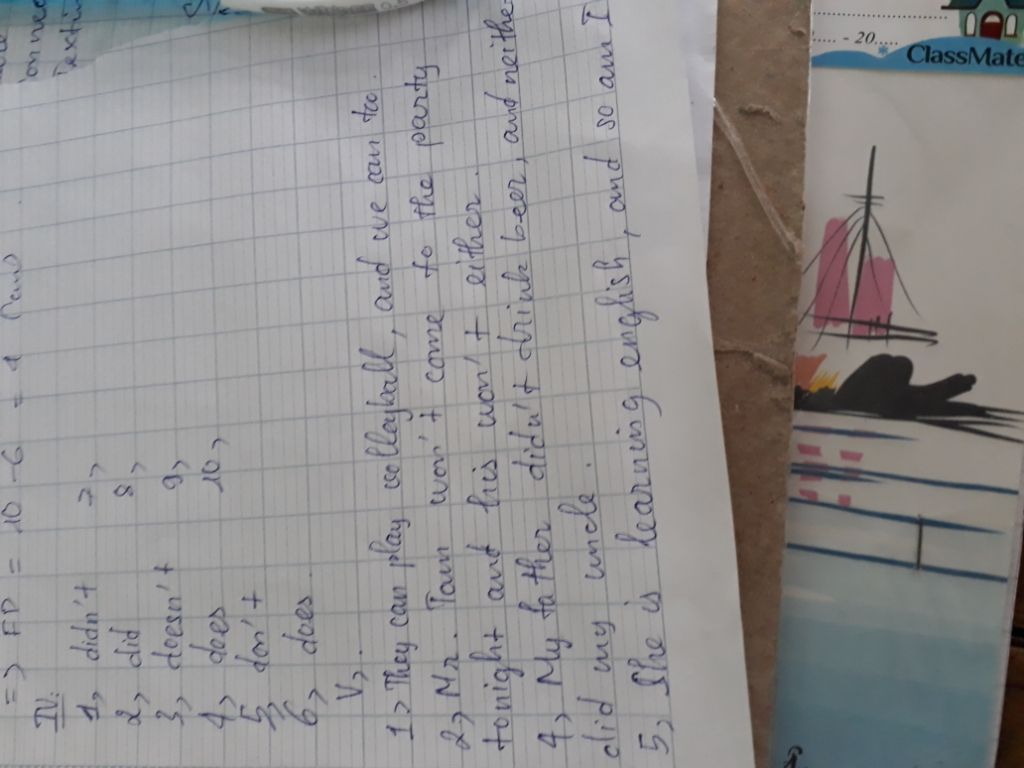 => FD = 10 - 6 = 4
IV.
1, didn't 7,
2, did 8,
3, doesn't 9,
4, does 10,
5, don't
6, does
V,
1, They can play volleyball, and we can too.
2, Mr. Tam won't come to the party
tonight and his won't either.
4, My father didn't drink beer, and neither
did my uncle.
5, She is learning english, and so am I
..... - 20.....
ClassMate